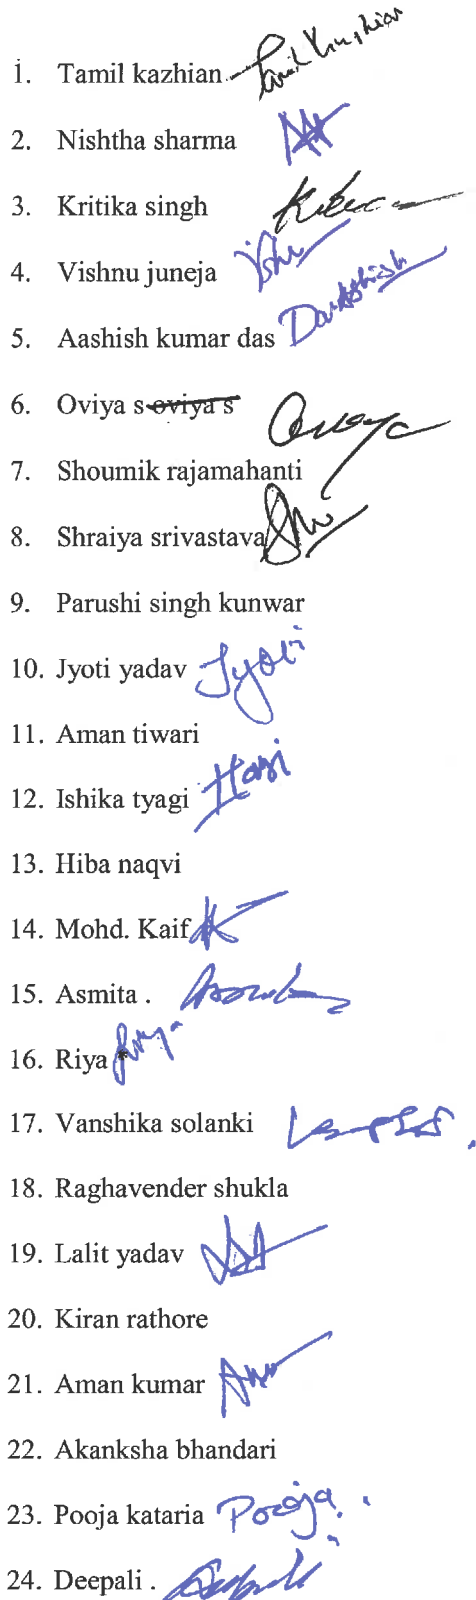 1. Tamil kazhian Tamil Kazhian
2. Nishtha sharma
3. Kritika singh
4. Vishnu juneja
5. Aashish kumar das
6. Oviya s oviya s Oviya
7. Shoumik rajamahanti
8. Shraiya srivastava
9. Parushi singh kunwar
10. Jyoti yadav Jyoti
11. Aman tiwari
12. Ishika tyagi
13. Hiba naqvi
14. Mohd. Kaif
15. Asmita .
16. Riya Riya
17. Vanshika solanki
18. Raghavender shukla
19. Lalit yadav
20. Kiran rathore
21. Aman kumar
22. Akanksha bhandari
23. Pooja kataria Pooja
24. Deepali .